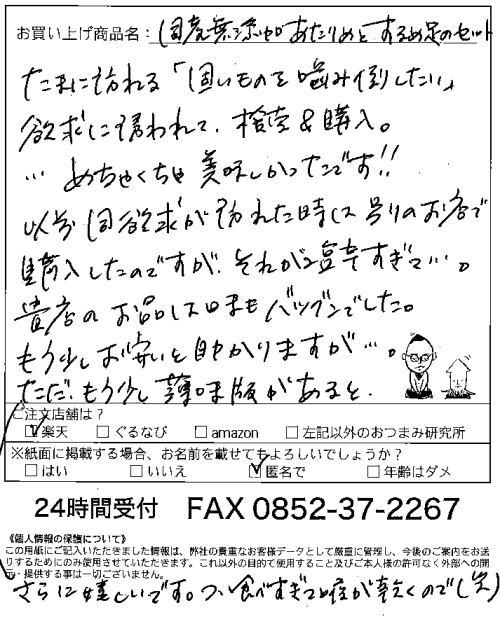 お買い上げ商品名：国産無添加あたりめとするめ足のセット
たまに訪れる「固いものを噛み倒したい」
欲求に誘われて、検索&購入。
… めちゃくちゃ美味しかったです!!
以前同欲求が訪れた時は別のお店で
購入したのですが、それがまあ塩辛すぎて…。
貴店のお品は味もバツグンでした。
もう少しお安いと助かりますが…。
ただ、もう少し薄味版があると、
ご注文店舗は？
楽天 ぐるなび amazon 左記以外のおつまみ研究所
※紙面に掲載する場合、お名前を載せてもよろしいでしょうか？
はい いいえ 匿名で 年齢はダメ
24時間受付 FAX 0852-37-2267
《個人情報の保護について》
この用紙にご記入いただきました情報は、弊社の貴重なお客様データとして厳重に管理し、今後のご案内をお送
りするためにのみ使用させていただきます。これ以外の目的で使用すること及びご本人様の許可なく外部への開
示・提供する事は一切ございません。
さらに嬉しいです。つい食べすぎて喉が乾くので(笑)